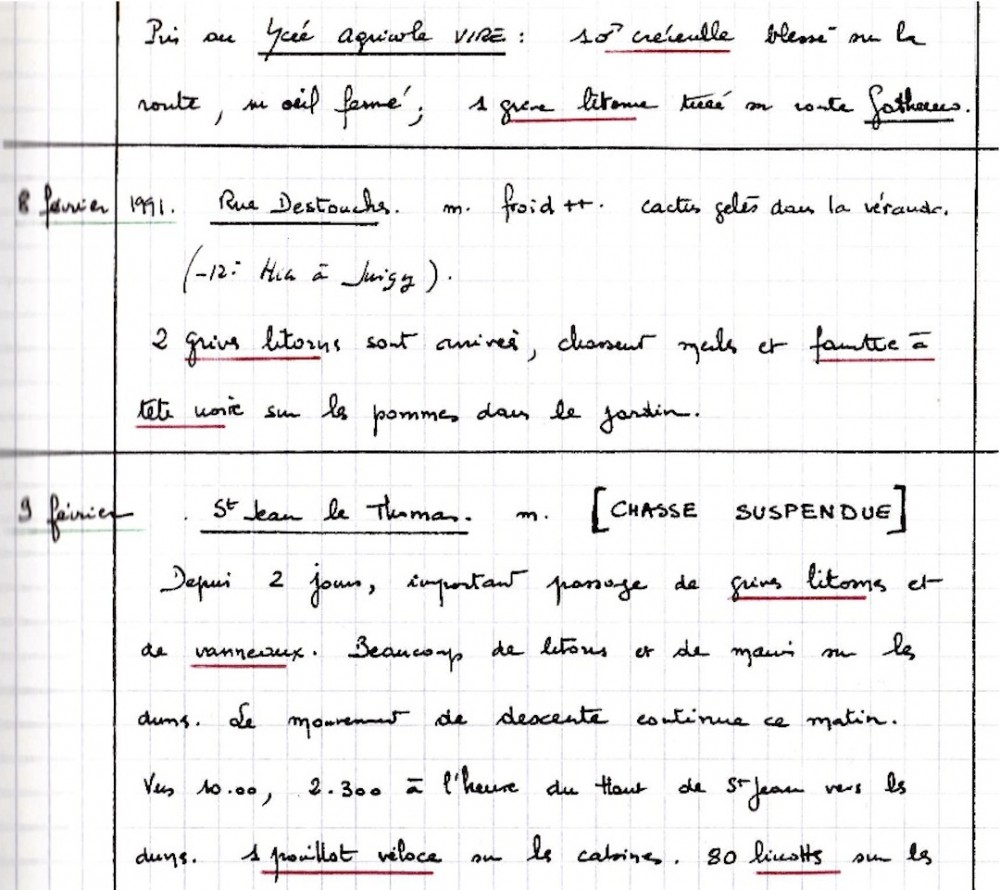 Pris au Lycée agricole VIRE : 1 ♂ crécerelle blessé sur la
route, un oeil fermé ; 1 grive litorne tuée sur route Gathemo.
8 février 1991. Rue Destouches. m. froid ++. cactus gelés dans la véranda.
(-12° Hier à Juvigny).
2 grives litornes sont arrivées, chassent merles et fauvette à
tête noire sur les pommes dans le jardin.
9 février. St Jean le Thomas. m. [CHASSE SUSPENDUE]
Depuis 2 jours, important passage de grives litornes et
de vanneaux. Beaucoup de litornes et de mauvis sur les
dunes. Le mouvement de descente continue ce matin.
Vers 10.00, 2.300 à l'heure du Haut de St Jean vers les
dunes. 1 pouillot véloce sur les cabines. 80 linottes sur les